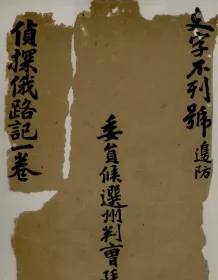 字不列號 邊防
委員候選州判曹廷
偵探俄路記一卷